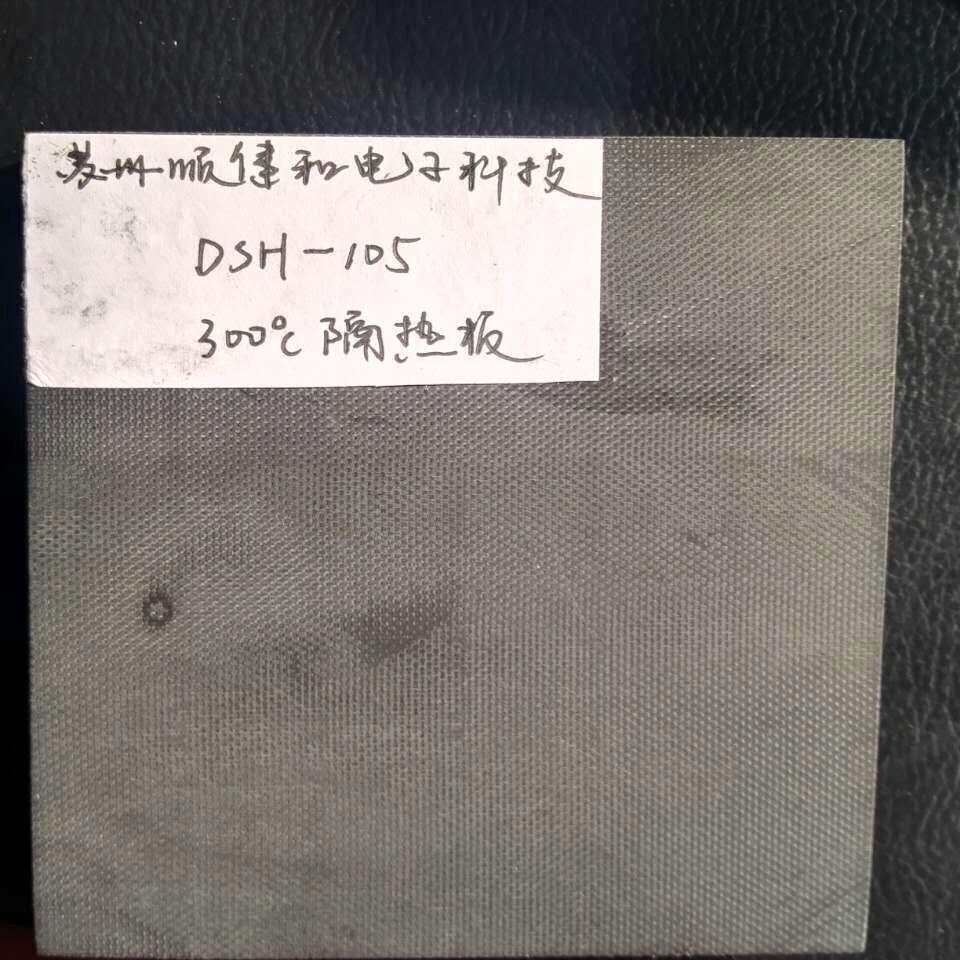 苏州顺佳和电子科技
DSH-105
300℃隔热板